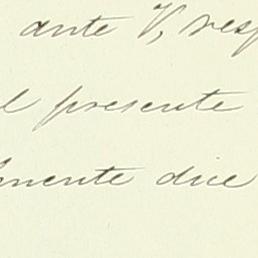 ante V, resp
l presente
mente dice